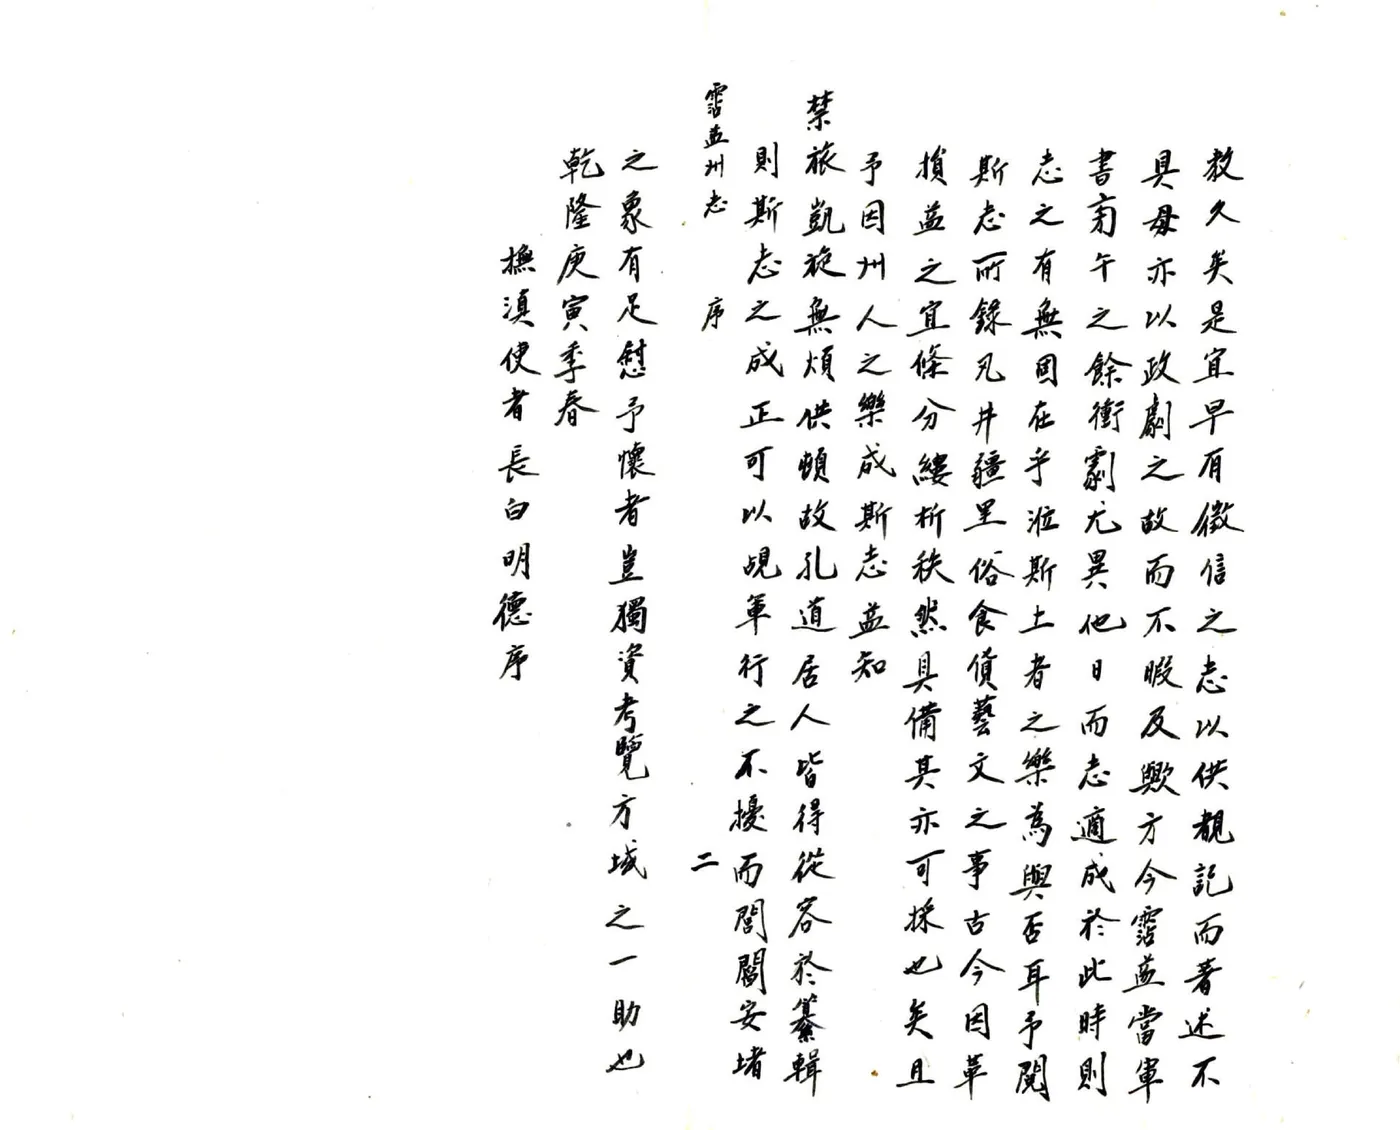 教久矣是宜早有徵信之志以供觀記而著述不
具毋亦以政劇之故而不暇及歟方今霑益當軍
書旁午之餘衝劇尤異他日而志適成於此時則
志之有無固在乎涖斯土者之樂為與否耳予閱
斯志所錄凡井疆里俗食貨藝文之事古今因革
損益之宜條分縷析秩然具備其亦可採也矣且
予因州人之樂成斯志益知
禁旅凱旋無煩供頓故孔道居人皆得從容於纂輯
則斯志之成正可以覘軍行之不擾而閭閻安堵
霑益州志 序 二
之象有足慰予懷者豈獨資考覽方域之一助也
乾隆庚寅季春
撫滇使者長白明德序